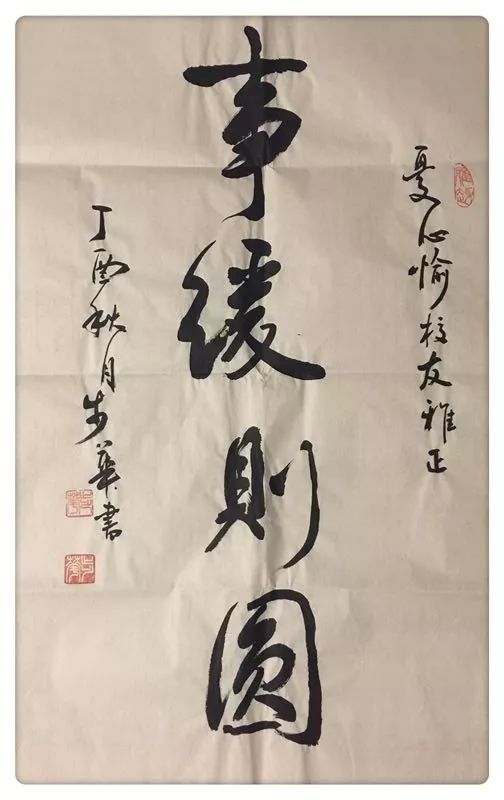 夏心愉校友雅正
事緩則圓
丁酉秋月步華書